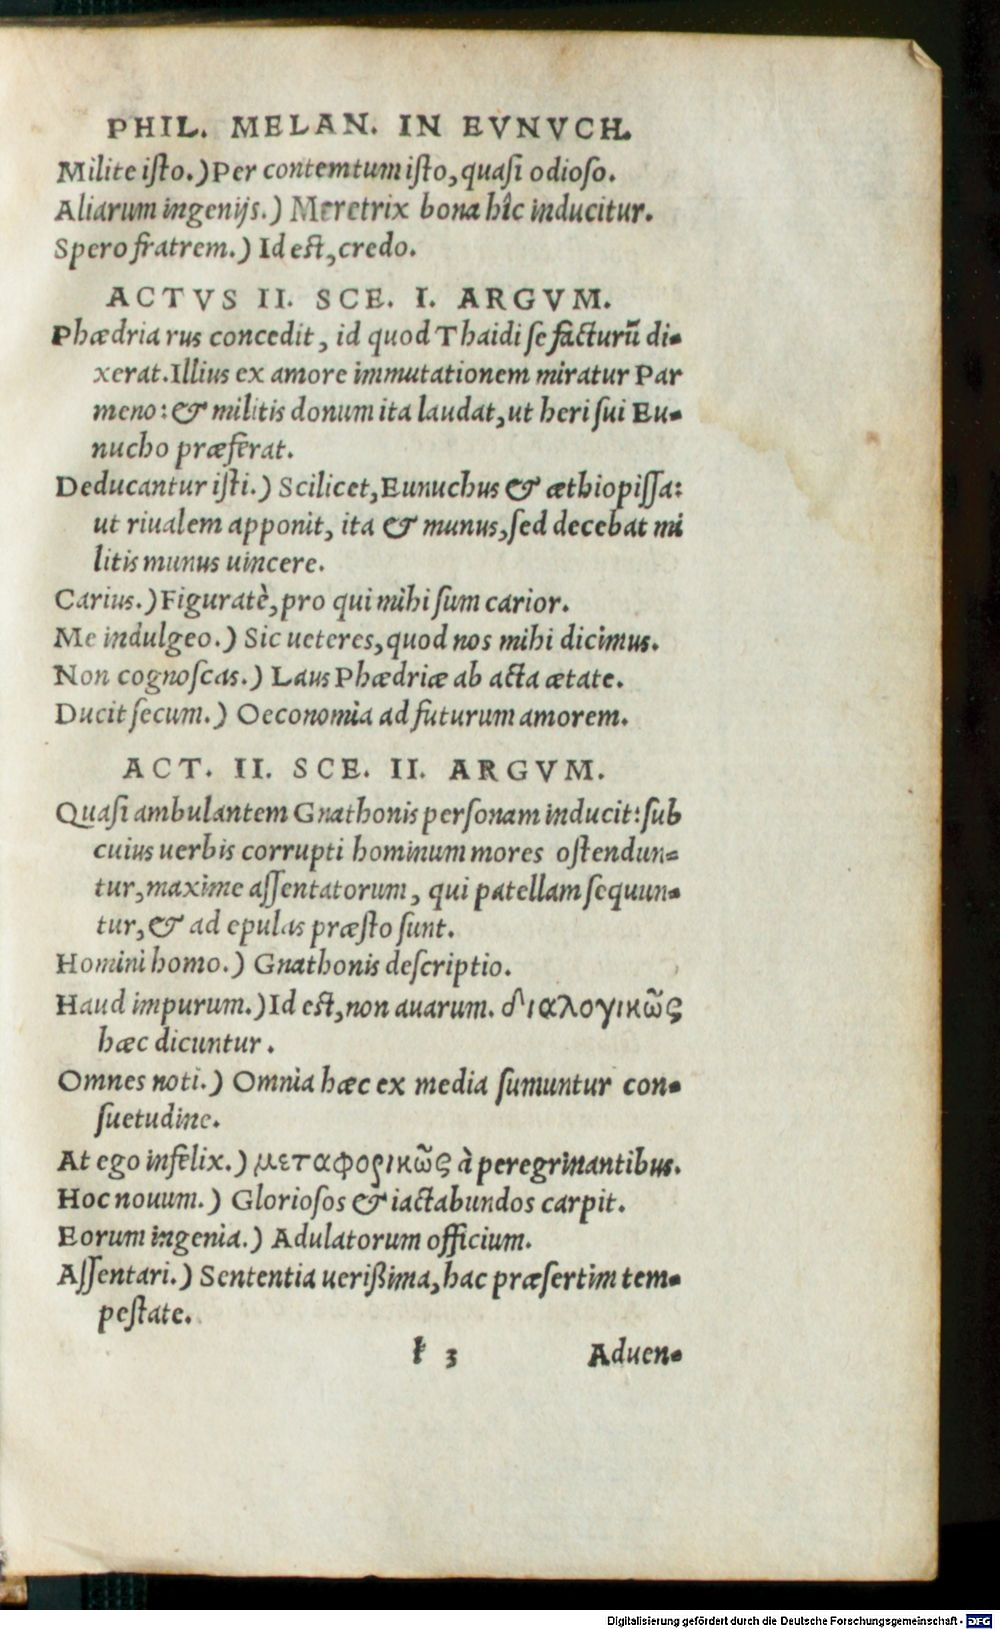 PHIL. MELAN. IN EVNVCH.
Milite iſto.) Per contemtum iſto, quaſi odioſo.
Aliarum ingenijs.) Meretrix bona hîc inducitur.
Spero fratrem.) Id eſt, credo.
ACTVS II. SCE. I. ARGVM.
Phædria rus concedit, id quod Thaidi ſe facturũ di-
xerat. Illius ex amore immutationem miratur Par
meno: & militis donum ita laudat, ut heri ſui Eu-
nucho præferat.
Deducantur iſti.) Scilicet, Eunuchus & æthiopiſſa:
ut riualem apponit, ita & munus, ſed decebat mi
litis munus uincere.
Carius.) Figuratè, pro qui mihi ſum carior.
Me indulgeo.) Sic ueteres, quod nos mihi dicimus.
Non cognoſcas.) Laus Phædriæ ab acta ætate.
Ducit ſecum.) Oeconomia ad futurum amorem.
ACT. II. SCE. II. ARGVM.
Quaſi ambulantem Gnathonis perſonam inducit: ſub
cuius uerbis corrupti hominum mores oſtendun-
tur, maxime aſſentatorum, qui patellam ſequun-
tur, & ad epulas præſto ſunt.
Homini homo.) Gnathonis deſcriptio.
Haud impurum.) Id eſt, non auarum. διαλογικῶς
hæc dicuntur.
Omnes noti.) Omnia hæc ex media ſumuntur con-
ſuetudine.
At ego infelix.) μεταφορικῶς à peregrinantibus.
Hoc nouum.) Glorioſos & iactabundos carpit.
Eorum ingenia.) Adulatorum officium.
Aſſentari.) Sententia uerißima, hac præſertim tem-
peſtate.
k 3 Aduen-
Digitalisierung gefördert durch die Deutsche Forschungsgemeinschaft - DFG